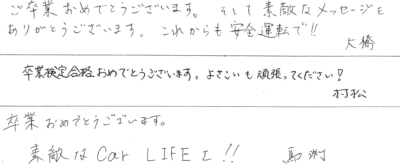 ご卒業おめでとうございます。そして素敵なメッセージを
ありがとうございます。これからも安全運転で!!
大橋
卒業検定合格おめでとうございます。よさこいも頑張ってください!
村松
卒業おめでとうございます。
素敵なCar LIFEを!! 馬渕